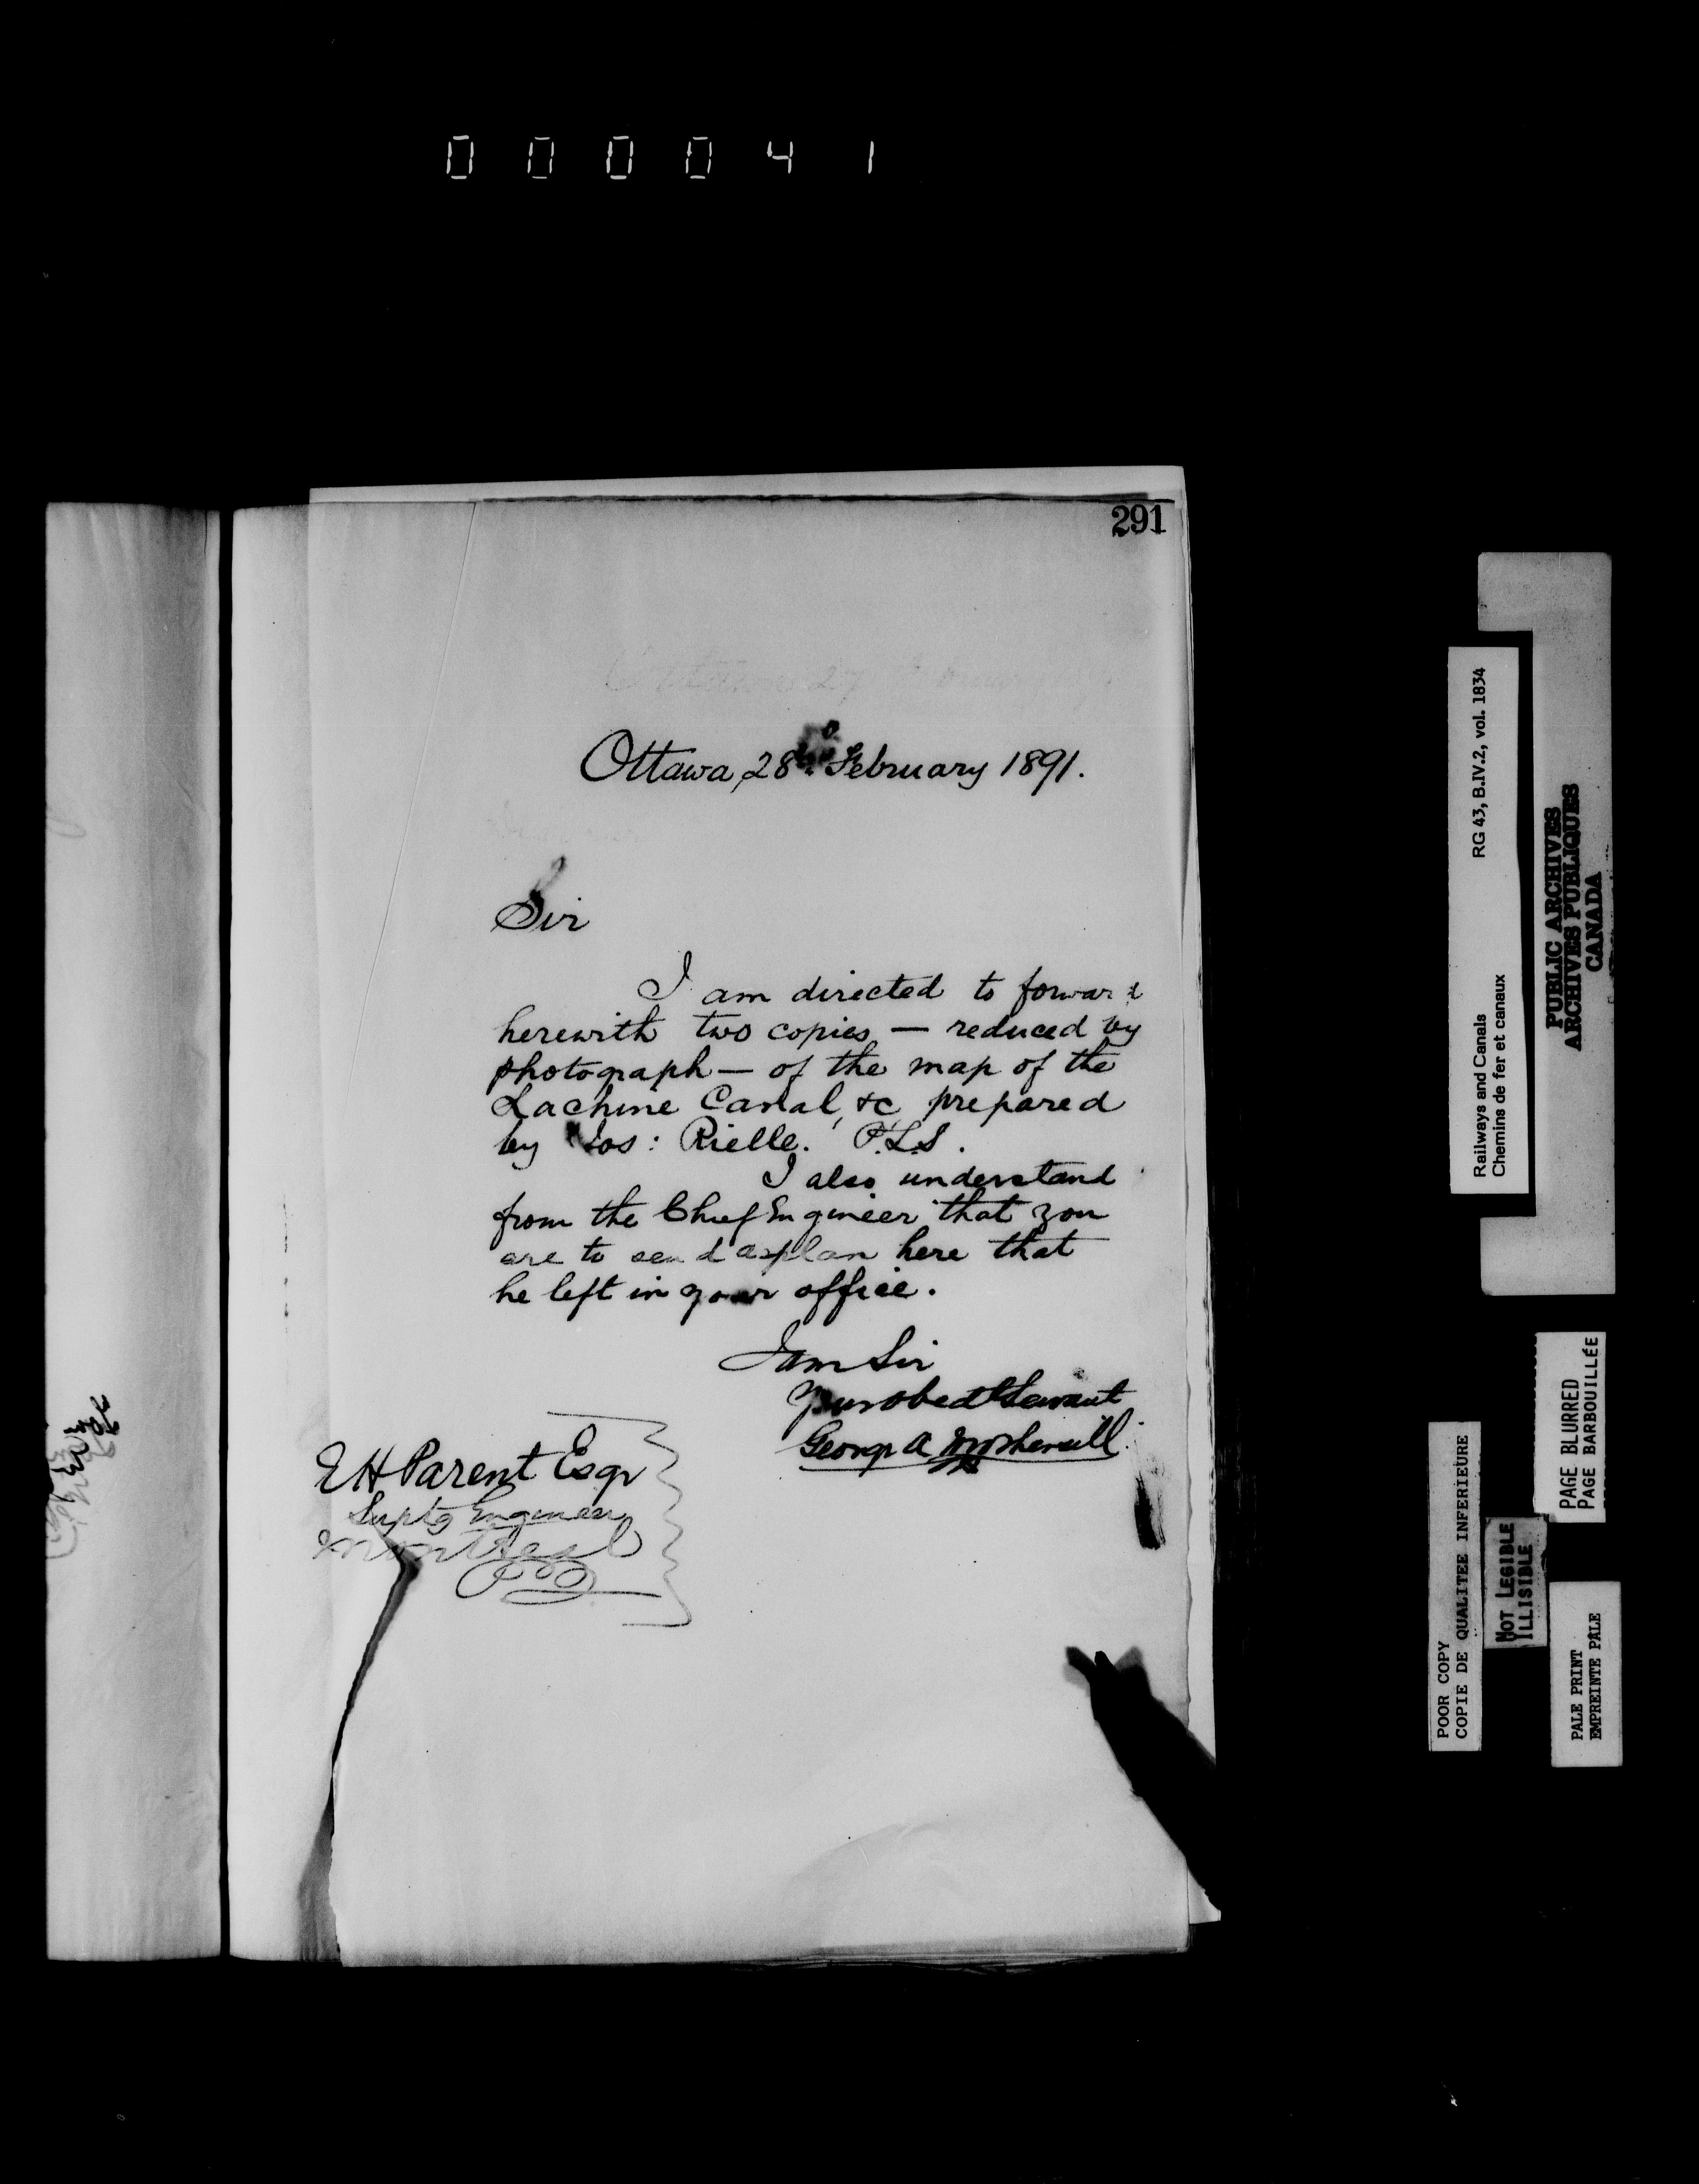 0 0 0 0 4 1
291
Ottawa, 28th February 1891.
Sir
I am directed to forward
herewith two copies — reduced by
photograph — of the map of the
Lachine Canal, &c prepared
by Jos: Rielle. P.L.S.
I also understand
from the Chief Engineer that you
are to send a plan here that
he left in your office.
I am Sir
Your obedt Servant
George A
E H Parent Esqr
Suptg Engineer
Montreal
Railways and Canals RG 43, B.IV.2, vol. 1834
Chemins de fer et canaux
PUBLIC ARCHIVES
ARCHIVES PUBLIQUES
CANADA
POOR COPY
COPIE DE QUALITEE INFERIEURE
NOT LEGIBLE
ILLISIBLE
PAGE BLURRED
PAGE BARBOUILLÉE
PALE PRINT
EMPREINTE PÂLE